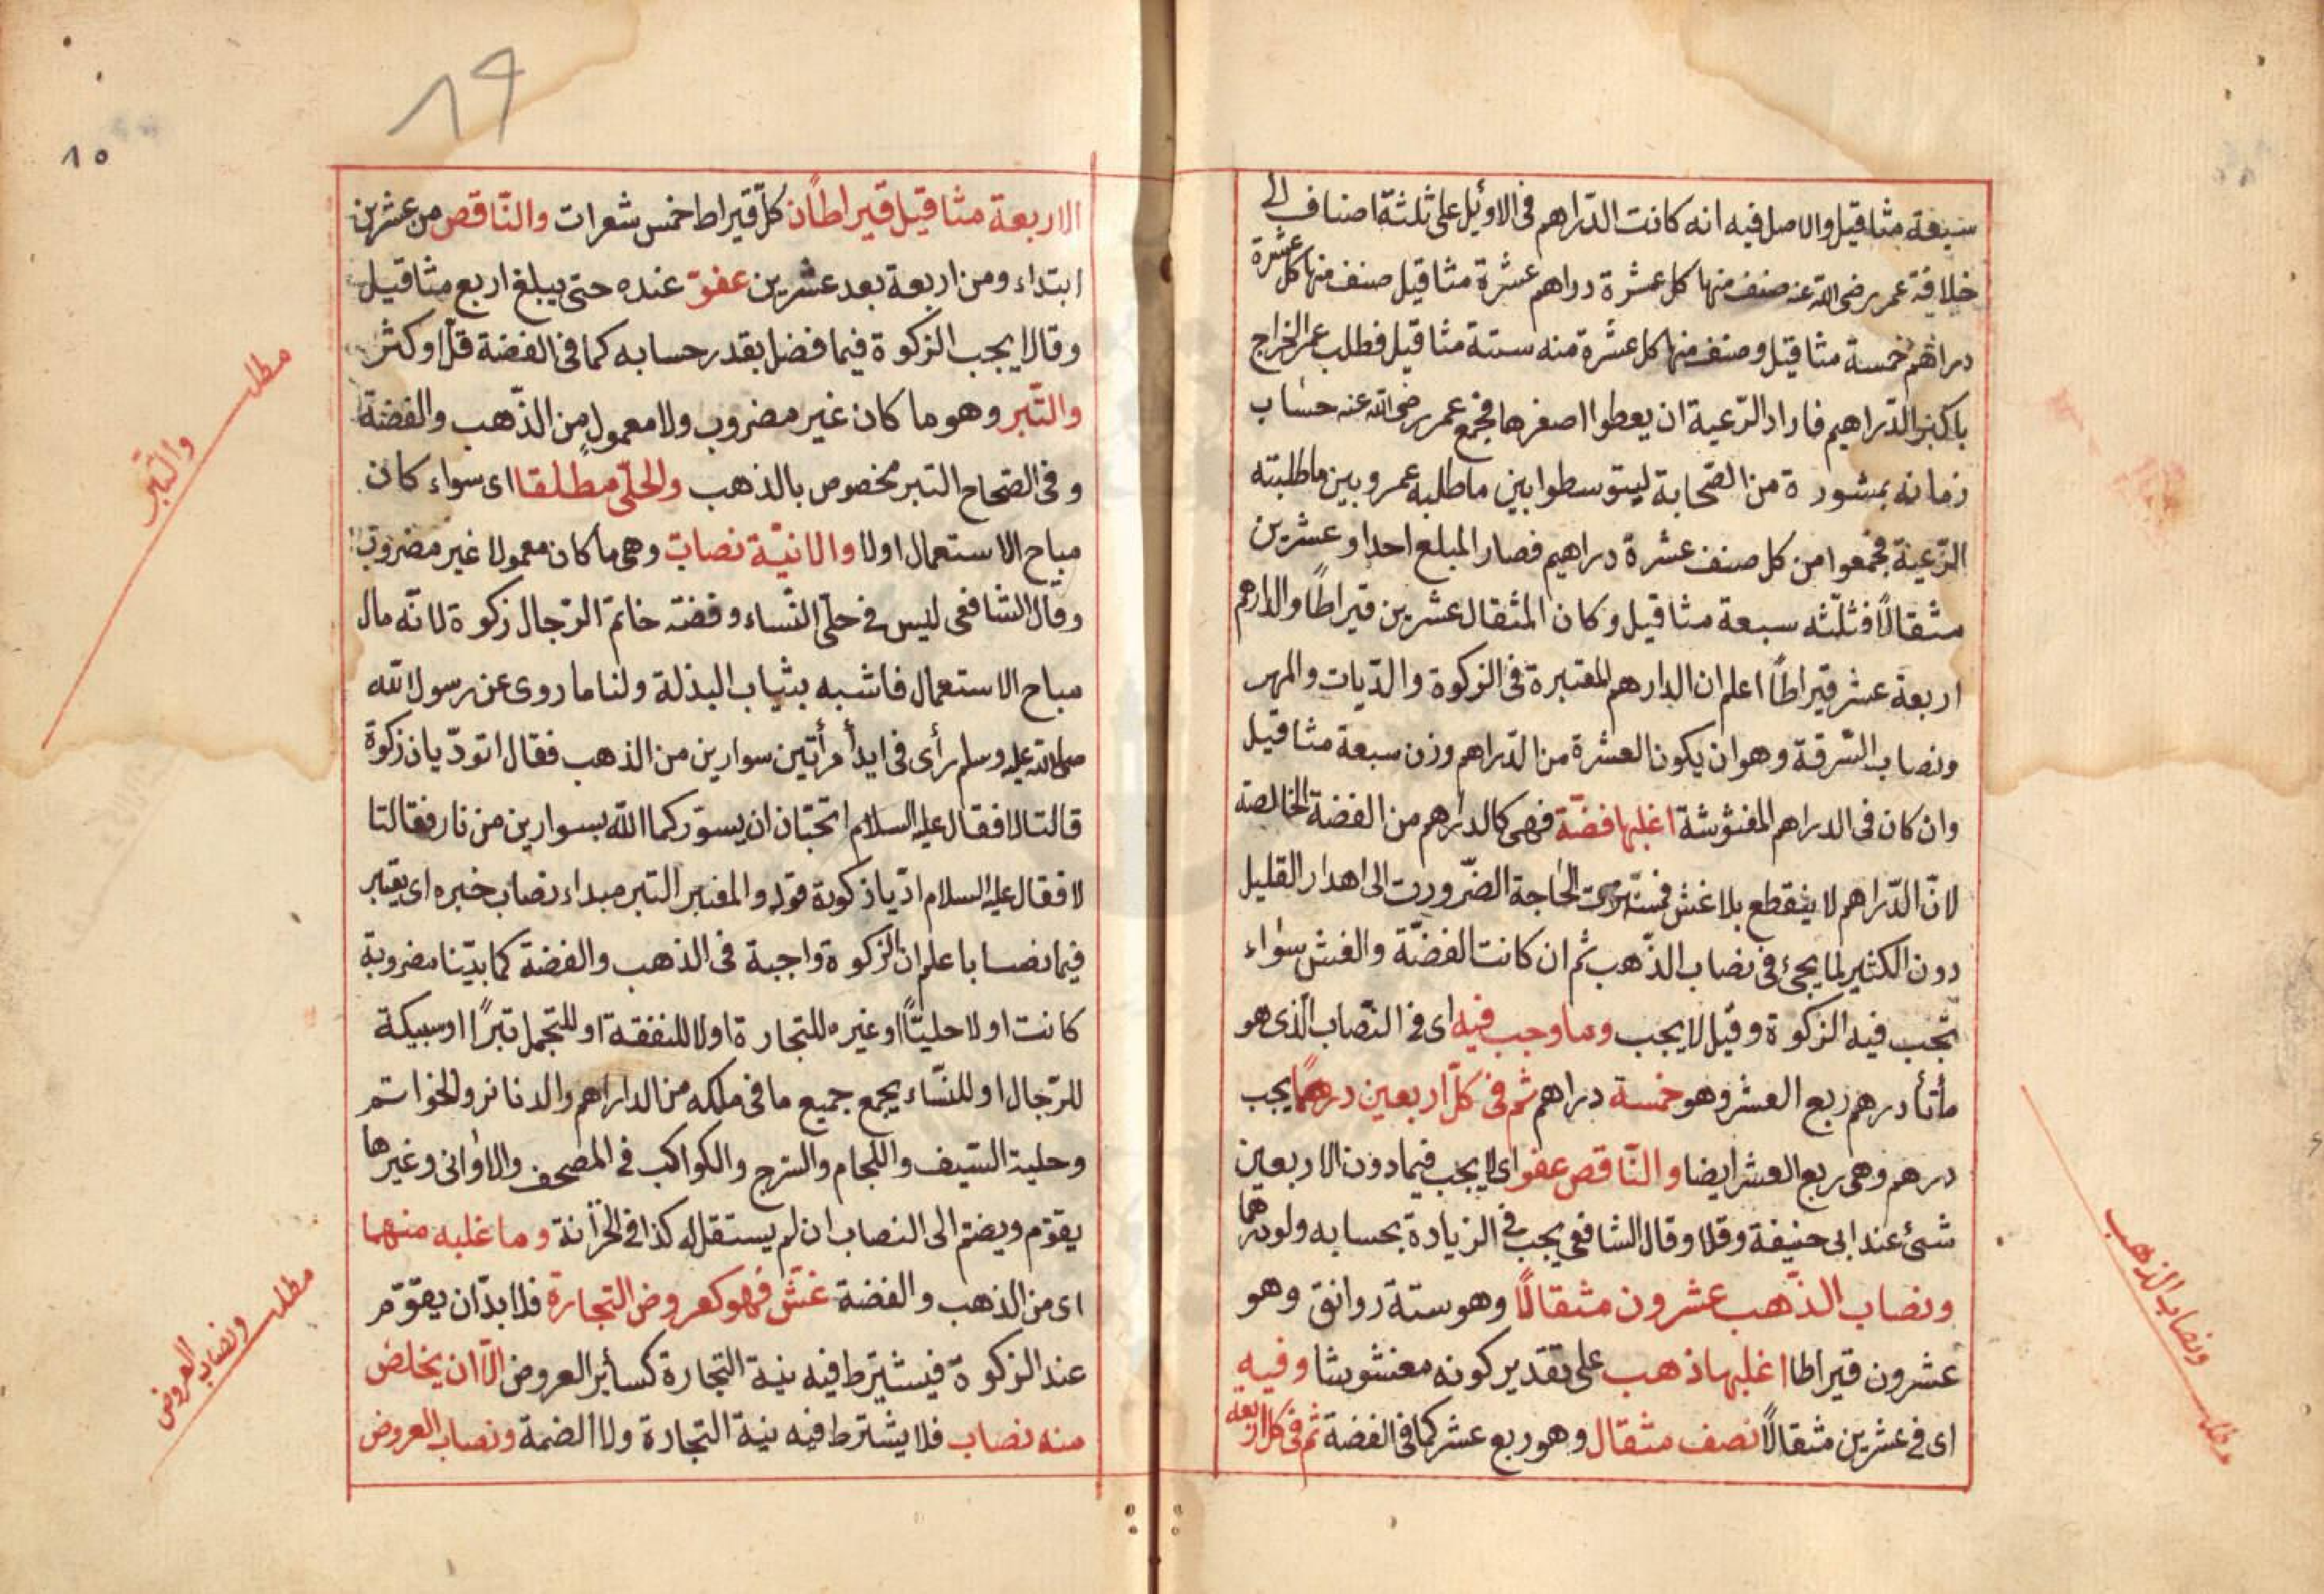 سبعة مثاقيل والاصل فيه انه كانت الدّراهم فى الاوئل على ثلثة اصناف الى
خلافة عمر رضى الله عنه صنف منها كل عشرة دراهم عشرة مثاقيل صنف منها كل عشرة
دراهم خمسة مثاقيل وصنف منها كل عشرة منه ستة مثاقيل فطلب عمر الخراج
باكبر الدّراهيم فاراد الرّعية ان يعطوا اصغرها فجمع عمر رضى الله عنه حساب
زمانه بمشورة من الصّحابة ليتوسطوا بين ما طلبه عمر وبين ما طلبته
الرّعية فجمعوا من كل صنف عشرة دراهيم فصار المبلغ احدا وعشرين
مثقالًا فثلّثه سبعة مثاقيل وكان المثقال عشرين قيراطًا والدارهم
اربعة عشر قيراطًا اعلم ان الدارهم المعتبرة فى الزكوة والدّيات والمهر
ونصاب السّرقة وهو ان يكون العشرة من الدّراهم وزن سبعة مثاقيل
وان كان فى الدراهم المغشوشة اغلبها فضّة فهى كالدراهم من الفضة الخالصة
لانّ الدّراهم لا ينقطع بلا غش الحاجة الضّرورت الى اهدار القليل
دون الكثير لما يجئ فى نصاب الذّهب ثم ان كانت الفضّة والغش سواء
تجب فيه الزكوة وقيل لا يجب وما وجب فيه اى فى النّصاب الّذى هو
مأتا درهم ربع العشر وهو خمسة دراهم ثم فى كلّ اربعين درهمًا يجب
درهم وهى ربع العشر ايضا والنّاقص عفو اى لا يجب فيما دون الاربعين
شئ عند ابى حنيفة وقالا وقال الشافعى يجب فى الزيادة بحسابه ولو درهما
ونصاب الذّهب عشرون مثقالًا وهو ستة روانق وهو
عشرون قيراطا اغلبها ذهب على تقدير كونه مغشوشا وفيه
اى فى عشرين مثقالًا نصف مثقال وهو ربع عشر كما فى الفضة ثم فى كل اربعة
مطلب ونصاب الذهب
١٩
١٥
الاربعة مثاقيل قيراطان كلّ قيراط خمس شعرات والنّاقص من عشرين
ابتداء ومن اربعة بعد عشرين عفو عنده حتى يبلغ اربع مثاقيل
وقالا يجب الزكوة فيما فضل بقدر حسابه كما فى الفضة قلّ او كثر
والتّبر وهو ما كان غير مضروب ولا معمول من الذّهب والفضة
وفى الصّحاح التبر مخصوص بالذهب والحلّى مطلقا اى سواء كان
مباح الاستعمال اولا والانيّة نصاب وهى ما كان معمولا غير مضروب
وقال الشافعى ليس فى حلّى النّساء وفضة خاتم الرّجال زكوة لانّه مال
مباح الاستعمال فاشبه بثياب البذلة ولنا ما روى عن رسول الله
صلى الله عليه وسلم رأى فى ايد أمرأتين سوارين من الذهب فقال اتودّيان زكوة
قالتا لا فقال عليه السلام اتحبّان ان يسوّركما الله بسوارين من نار فقالتا
لا فقال عليه السلام ادّيا زكوة قوله والمعتبر التبر مبداء نصاب خبره اى يعتبر
فيما نصابا اعلم ان الزكوة واجبة فى الذهب والفضة كما بيّنا مضروبة
كانت اولا حليّا او غيره للتجارة اولا للنفقة او للتجمل تبرًا او سبيكة
للرّجال او للنّساء يجمع جميع ما فى ملكه من الداراهم والدنانر والخواتم
وحلية السّيف واللجام والسّرج والكواكب فى المصحف والاوانى وغيرها
يقوّم ويضم الى النصاب ان لم يستقل له كذا فى الخزانة وما غلبه منهما
اى من الذهب والفضة غشّ فهو كعروض التجارة فلا بدّ ان يقوّم
عند الزكوة فيشترط فيه نية التجارة كسائر العروض الّا ان يخلص
منه نصاب فلا يشترط فيه نية التجارة ولا الضمة ونصاب العروض
مطلب والتّبر
مطلب ونصاب العروض